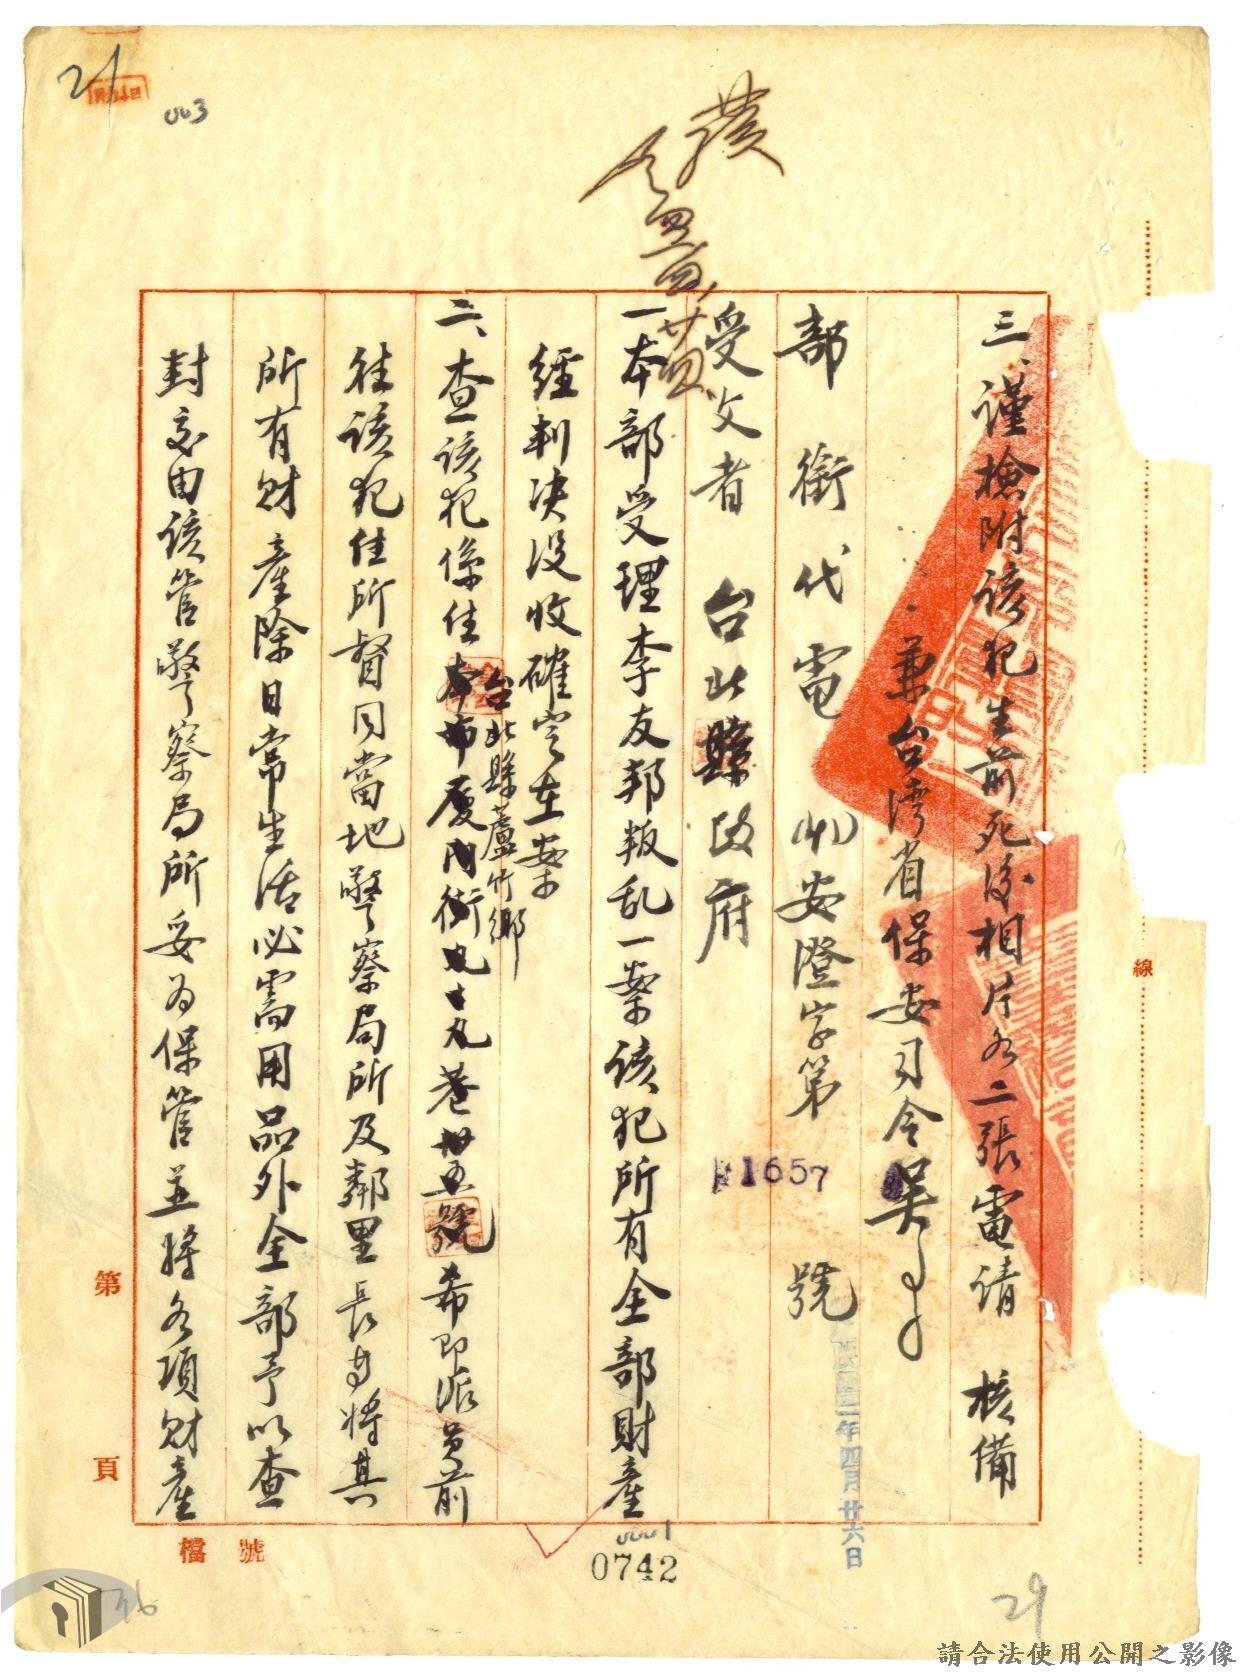 三、謹檢附該犯生前死後相片各二張電請 核備
兼台湾省保安司令吳
部銜代電 安澄字第 1657 號
民國四十一年四月廿六日
受文者 台北縣政府
一本部受理李友邦叛乱一案該犯所有全部財產
經判决沒收確定在案
二、查該犯係住本市廈門街九十九巷卅五號希即派員前
台北縣蘆竹鄉
往該犯住所督同當地警察局所及鄰里長等將其
所有財產除日常生活必需用品外全部予以查
封交由該管警察局所妥為保管並將各項財產
線
第 頁
檔 號
21
003
0001
0742
29
請合法使用公開之影像